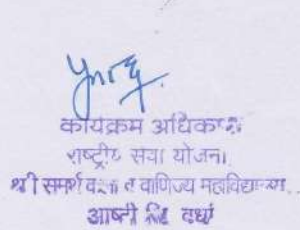 कार्यक्रम अधिकारी
राष्ट्रीय सेवा योजना
श्री समर्थ कला व वाणिज्य महाविद्यालय
आष्टी जि वर्धा